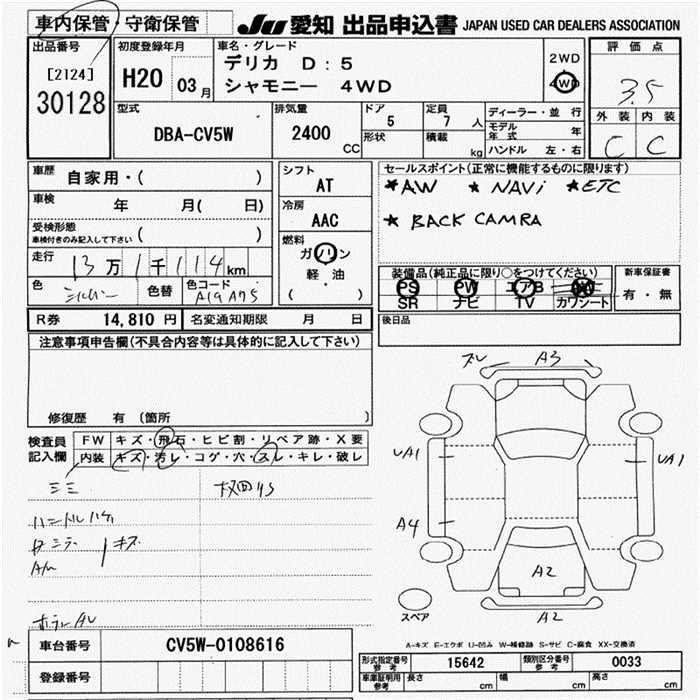 車内保管・守衛保管
JU 愛知 出品申込書 JAPAN USED CAR DEALERS ASSOCIATION
出品番号
[2124]
30128
初度登録年月
H20 03月
車名・グレード
デリカ D:5
シャモニー 4WD
2WD
4WD
評価点
3.5
外装 内装
C C
型式
DBA-CV5W
排気量
2400 CC
ドア
5
形状
定員
7 人
積載
kg
ディーラー・並行
モデル年式 年
ハンドル 左・右
車歴 自家用・( )
車検 年 月( 日)
受検形態 ( )
車検付きのみ記入して下さい
走行 13万1千114km
色 シルバー 色替 色コード A19 A75
シフト
AT
冷房
AAC
燃料
ガソリン
軽・油
( )
セールスポイント(正常に機能するものに限ります)
★AW ★NAVi ★ETC
★BACK CAMRA
装備品(純正品に限り○をつけてください)
PS PW エアB
SR ナビ TV カワシート
新車保証書
有・無
R券 14,810円 名変通知期限 月 日
後日品
注意事項申告欄(不具合内容等は具体的に記入して下さい)
修復歴 有 (箇所 )
検査員記入欄
FW キズ・飛石・ヒビ割・リペア跡・X要
内装 キズ・汚レ・コゲ・穴・スレ・キレ・破レ
ズレ A3
UA1 UA1
A4
A2
A2
スペア
ハンドルハゲ
キズ
A-キズ E-エクボ U-凹み W-補修跡 S-サビ C-腐食 XX-交換済
車台番号 CV5W-0108616
登録番号
形式指定番号 参考 15642 類別区分番号 参考 0033
車庫証明用 参考 長さ cm 幅 cm 高さ cm